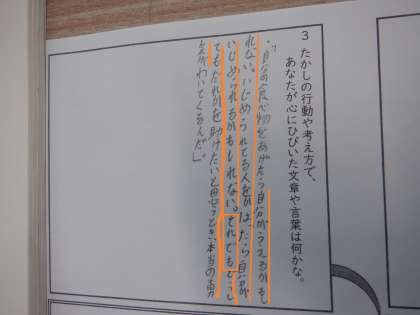 3 たかしの行動や考え方で、
あなたが心にひびいた文章や言葉は何かな。
・「自分の食べ物をあげたら自分がうえるかもし
れない。いじめられてる人をかばったら自分が
いじめられるかもしれない。それでもどうし
てもだれかを助けたいと思うとき、本当の勇
気がわいてくるんだ」